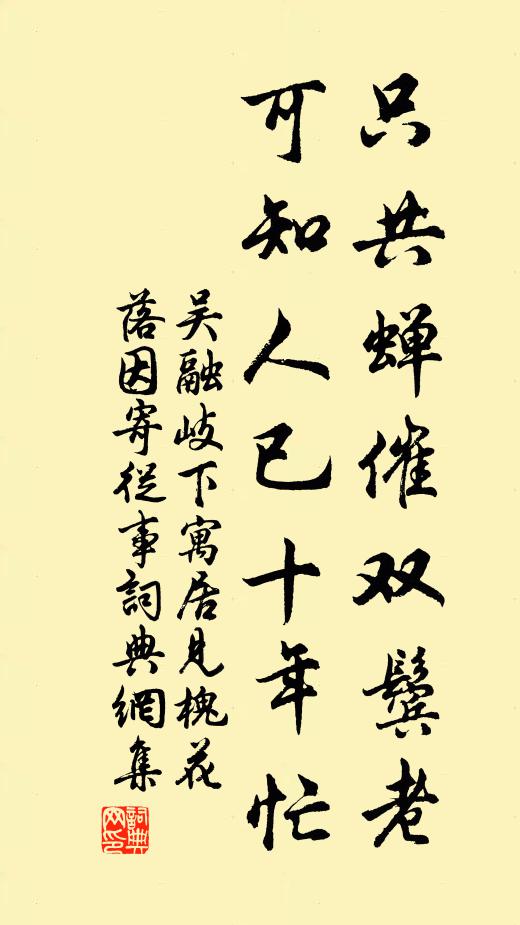 只共蝉催双鬓老
可知人已十年忙
吴融岐下寓居见槐花
落因寄從事詞典網集
詞典网印